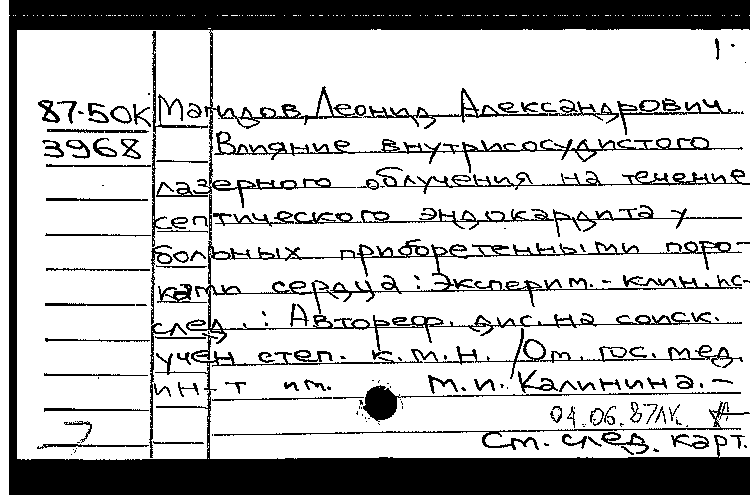 1.
87-50К Магидов, Леонид Александрович.
3968 Влияние внутрисосудистого
лазерного облучения на течение
септического эндокардита у
больных приобретенными поро-
ками сердца: Эксперим.-клин. ис-
след.: Автореф. дис. на соиск.
учен степ. к.м.н. /Ом. гос. мед.
ин-т им. М.И. Калинина.-
04.06.87
См. след. карт.